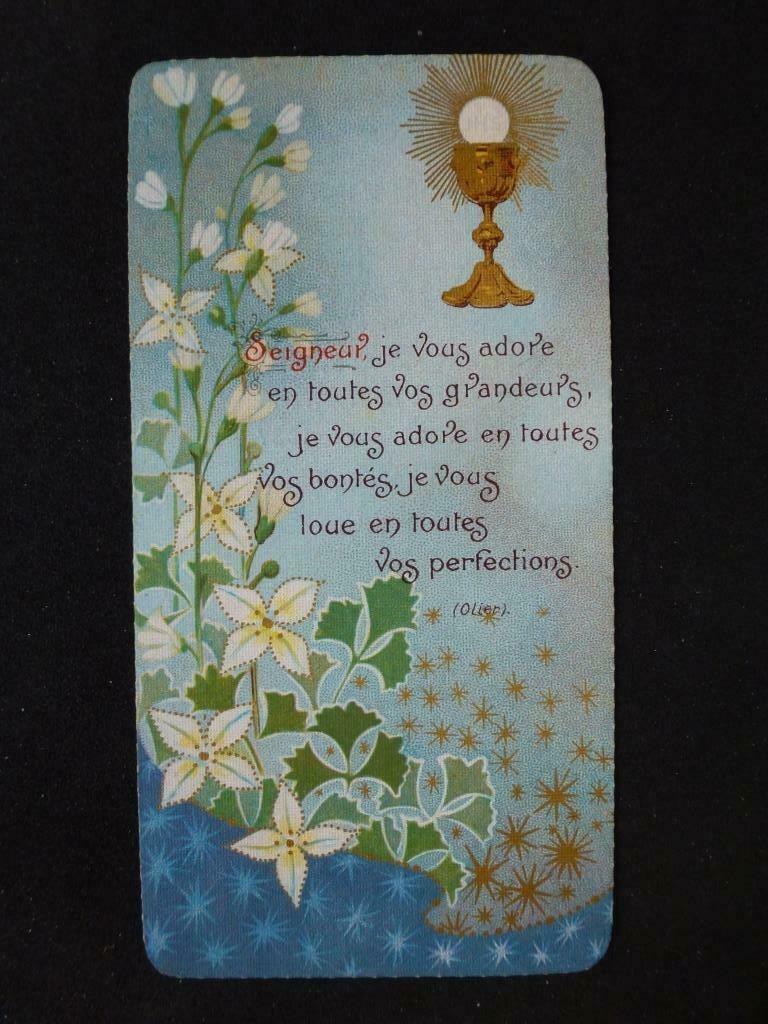 Seigneur, je vous adore
en toutes vos grandeurs,
je vous adore en toutes
vos bontés, je vous
loue en toutes
vos perfections.
(Olier).